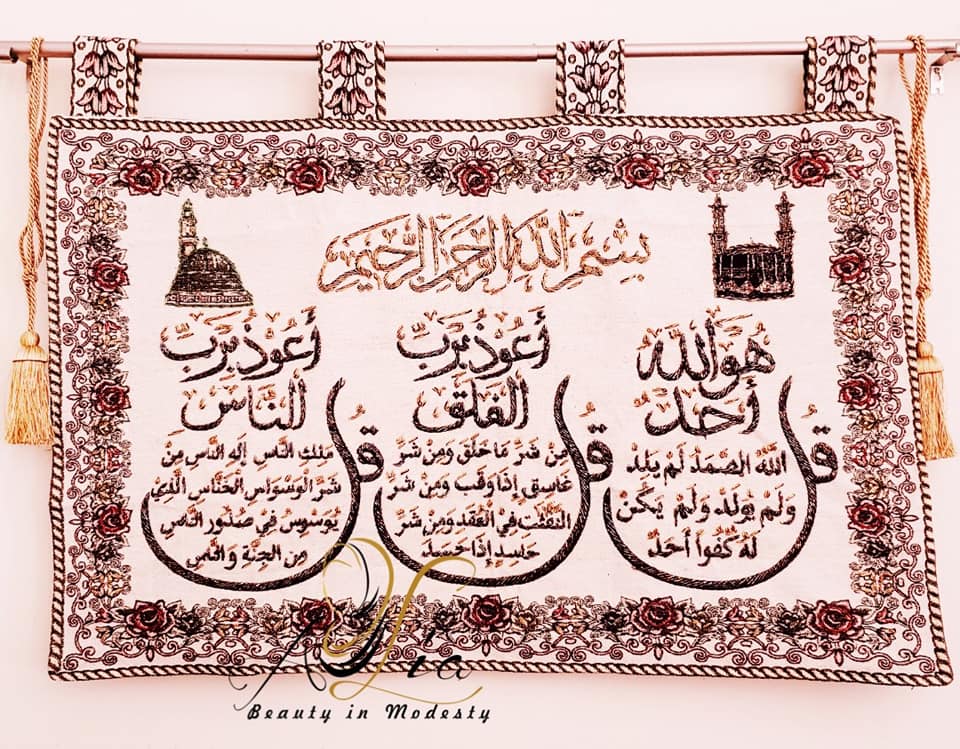 بِسْمِ اللَّهِ الرَّحْمَنِ الرَّحِيمِ
قُلْ
هُوَ اللَّهُ
أَحَدٌ
اللَّهُ الصَّمَدُ لَمْ يَلِدْ
وَلَمْ يُولَدْ وَلَمْ يَكُنْ
لَهُ كُفُوًا أَحَدٌ
قُلْ
أَعُوذُ بِرَبِّ
الْفَلَقِ
مِنْ شَرِّ مَا خَلَقَ وَمِنْ شَرِّ
غَاسِقٍ إِذَا وَقَبَ وَمِنْ شَرِّ
النَّفَّثَتِ فِي الْعُقَدِ وَمِنْ شَرِّ
حَاسِدٍ إِذَا حَسَدَ
قُلْ
أَعُوذُ بِرَبِّ
النَّاسِ
مَلِكِ النَّاسِ إِلَهِ النَّاسِ مِنْ
شَرِّ الْوَسْوَاسِ الْخَنَّاسِ الَّذِي
يُوَسْوِسُ فِي صُدُورِ النَّاسِ
مِنَ الْجِنَّةِ وَالنَّاسِ
Beauty in Modesty